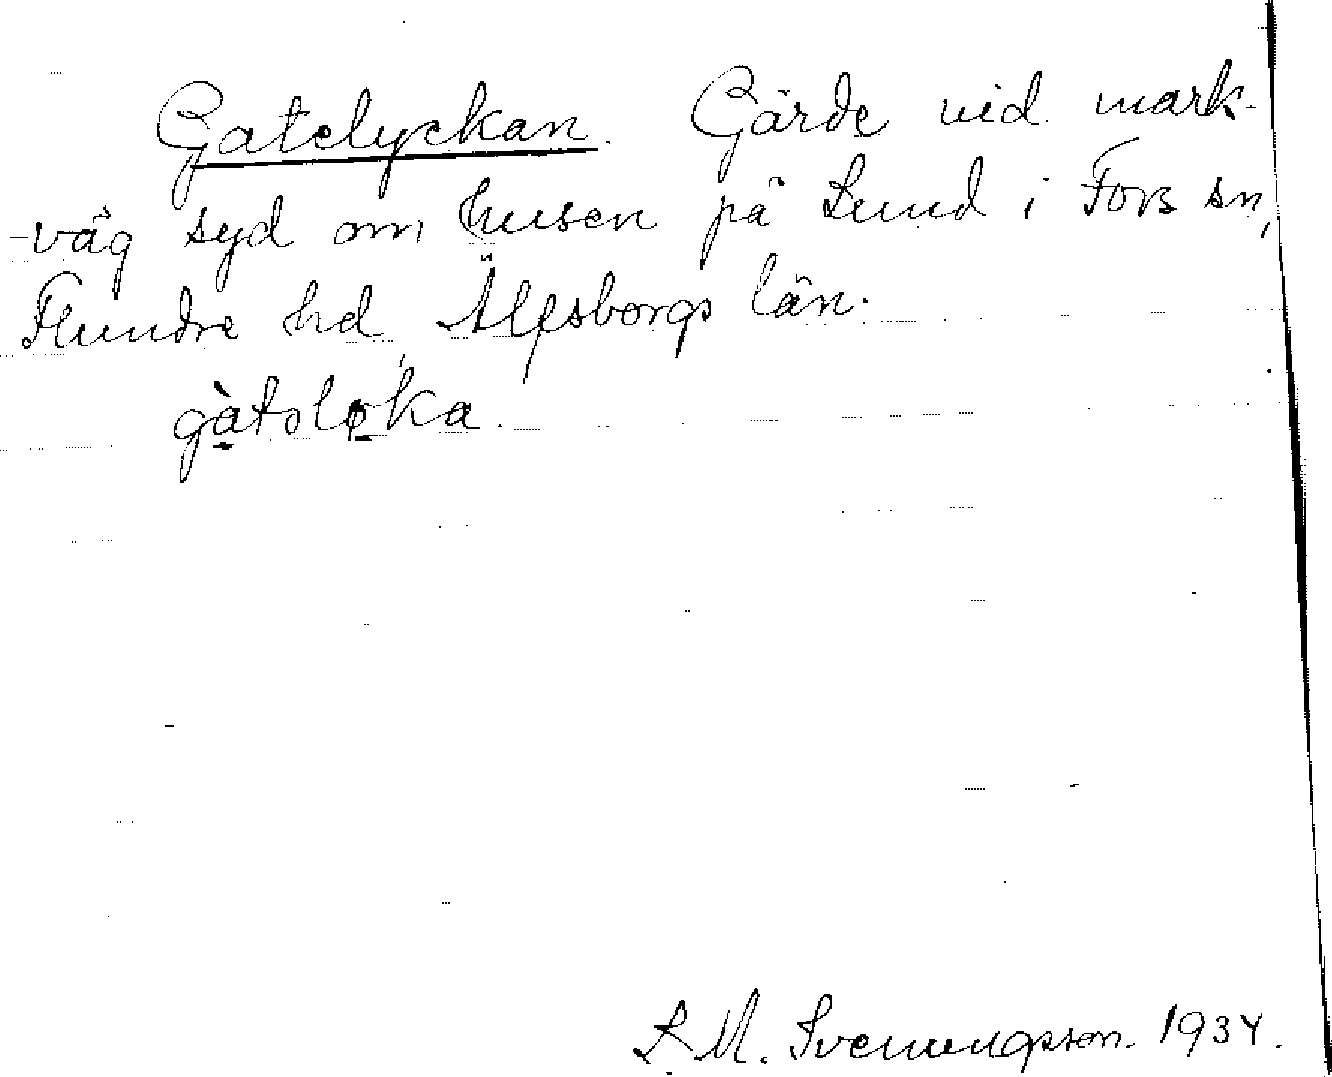 Gatelyckan. Gärde vid mark-
-väg syd om husen på Lund i Fors sn,
Flundre hd Älfsborgs län.
gàtolǫka.
L M. Svenungsson. 1934.